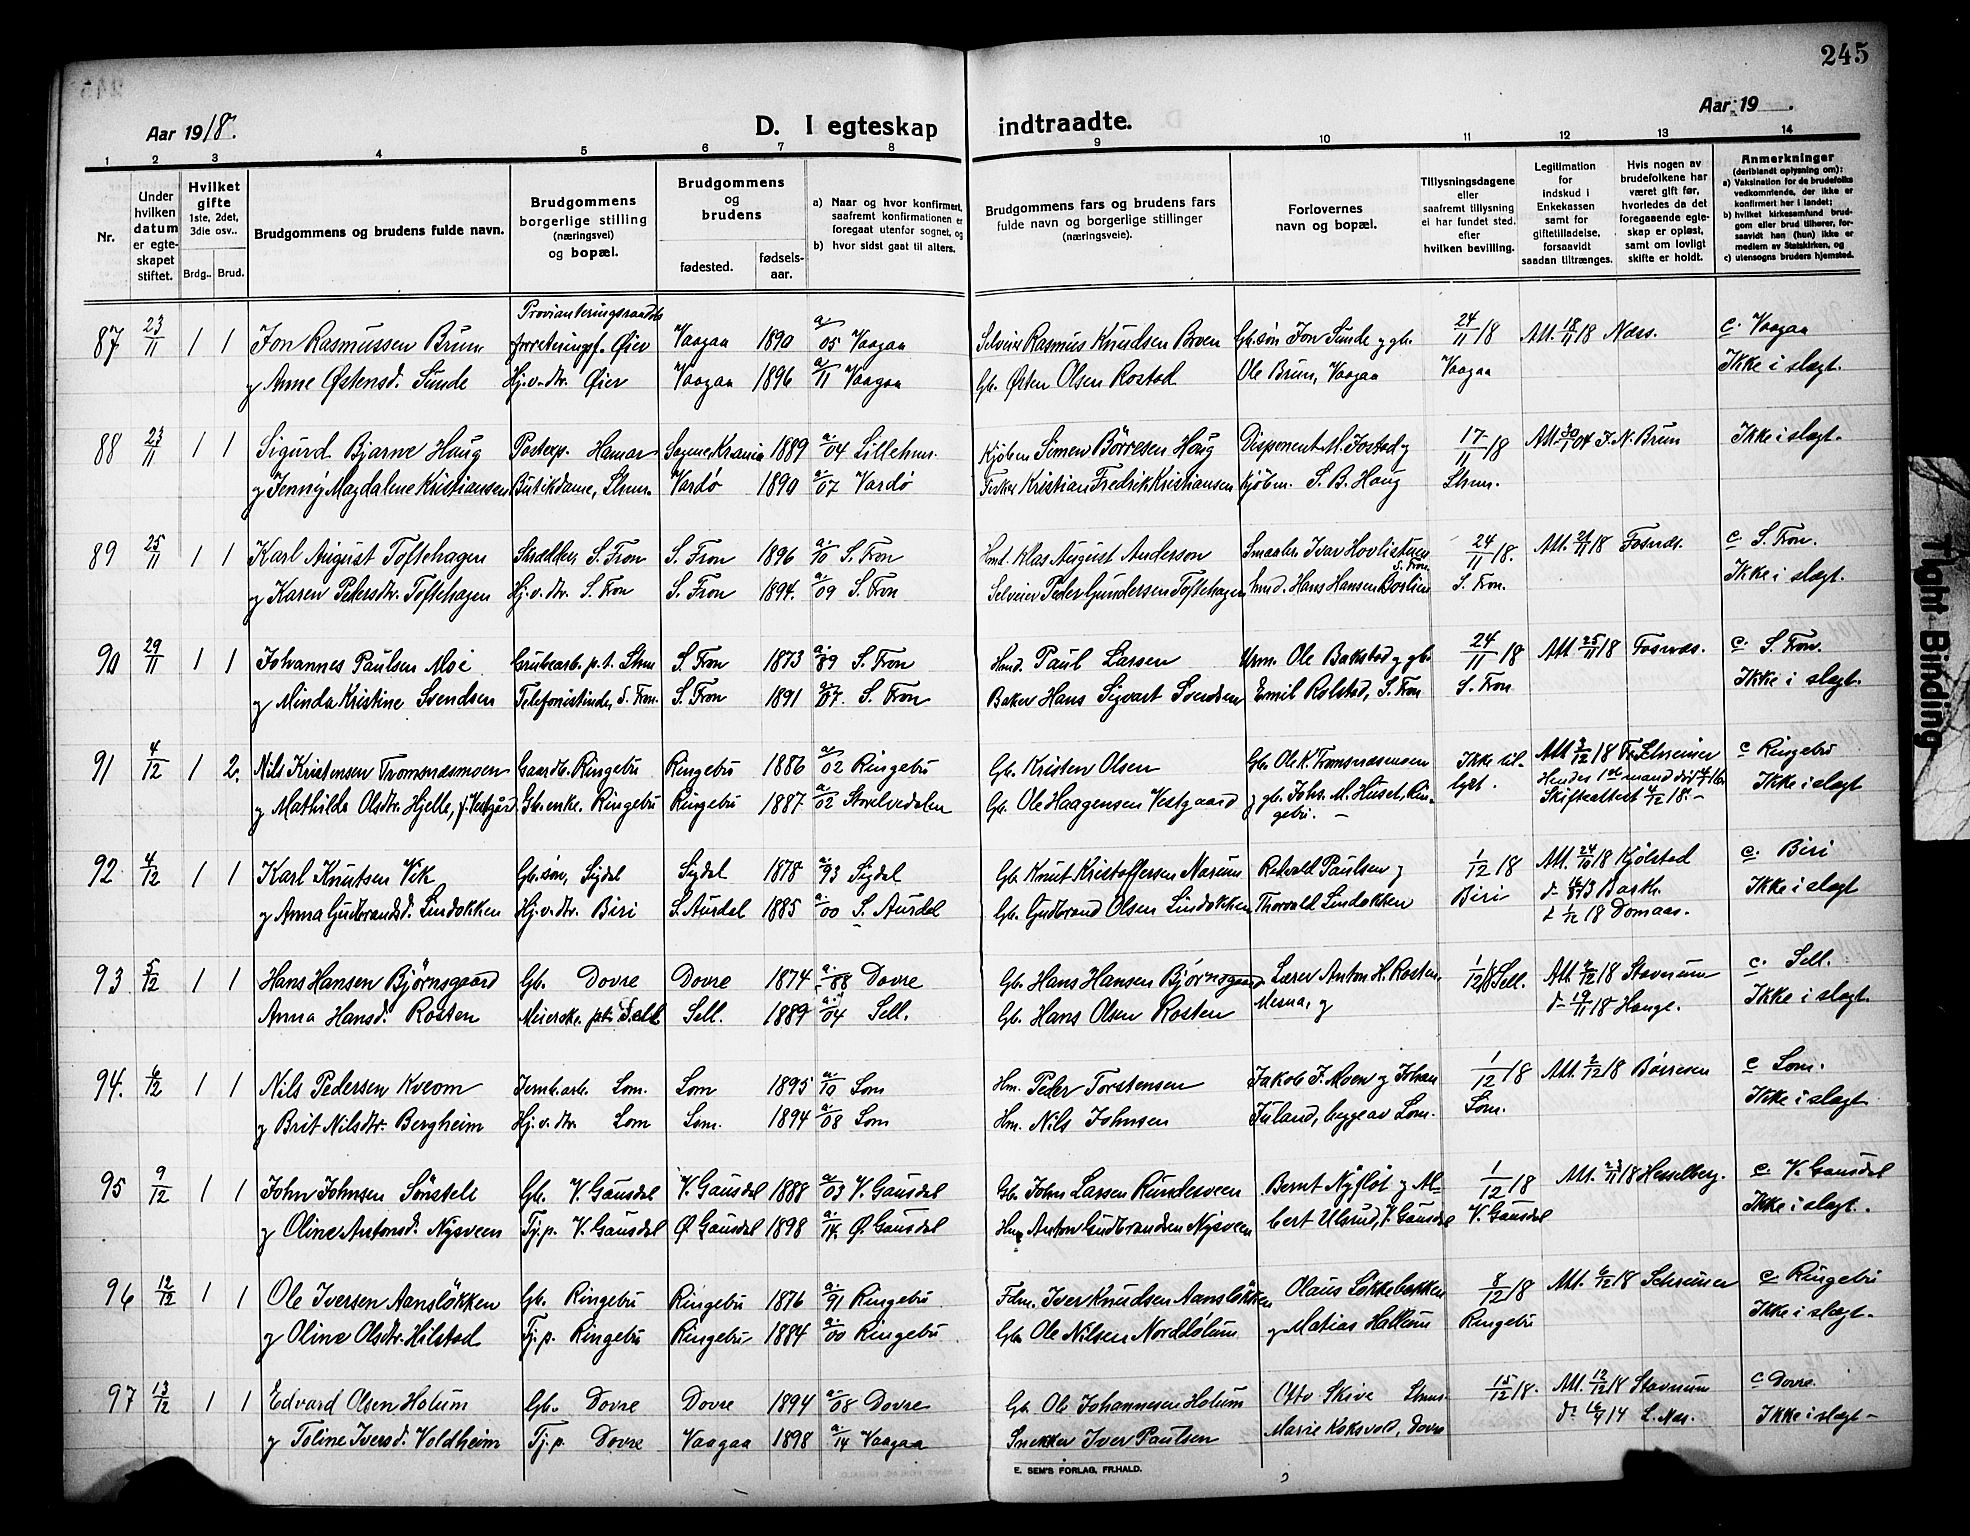 245
Aar 1918.
D. I egteskap indtraadte.
Aar 19
1 2 3 4 5 6 7 8 9 10 11 12 13 14
Nr.
Under hvilken datum er egteskapet stiftet.
Hvilket gifte 1ste, 2det, 3die osv.. Brdg.. Brud.
Brudgommens og brudens fulde navn.
Brudgommens borgerlige stilling (næringsvei) og bopæl.
Brudgommens og brudens fødested. fødselsaar.
a) Naar og hvor konfirmert, saafremt konfirmationen er foregaat utenfor sognet, og
b) hvor sidst gaat til alters.
Brudgommens fars og brudens fars fulde navn og borgerlige stillinger (næringsveie).
Forlovernes navn og bopæl.
Tillysningsdagene eller saafremt tillysning ei har fundet sted. efter hvilken bevilling.
Legitimation for indskud i Enkekassen samt for giftetilladelse, forsaavidt saadan tiltrænges.
Hvis nogen av brudefolkene har været gift før, hvorledes da det foregaaende egteskap er opløst, samt om lovligt skifte er holdt.
Anmerkninger (deriblandt oplysning om):
a) Vaksination for de brudefolks vedkommende, der ikke er konfirmert her i landet;
b) hvilket kirkesamfund brudgom eller brud tilhører, forsaavidt han (hun) ikke er medlem av Statskirken, og
c) utensogns bruders hjemsted.
Provianteringsraadets
87 23/11 1 1 Jon Rasmussen Brun forretningsf. Øier Vaagaa 1890 a/05 Vaagaa Selveier Rasmus Knudsen Broen Gb.søn Jon Sunde og gb. 24/11 18 Att. 18/11 18 Næss. c. Vaagaa
og Anne Østensd. Sunde Hj.v.dtr. Øier Vaagaa 1896 a/11 Vaagaa Gb. Østen Olsen Rostad Ole Brun, Vaagaa Vaagaa Ikke i slægt.
88 23/11 1 1 Sigurd Bjarne Haug Postexp. Hamar Sogne Krania 1889 a/04 Lillehmr. Kjøbm Simen Børresen Haug Disponent M. Jostad og 17/11 18 Att. J. N. Brun Ikke i slægt.
og Jenny Magdalene Kristiansen Butikdame, Lhmr. Vardø 1890 a/07 Vardø Fisker Kristian Fredrik Kristiansen kjøbm. S. B. Haug Lhmr.
89 25/11 1 1 Karl August Toftehagen Skrædder, S. Fron S. Fron 1896 a/10 S. Fron Hmd. Klas August Anderson Smaabr. Ivar Hovlistuen S. Fron 24/11 18. Att. 24/11 18 Fosnæs. c. S. Fron.
og Karen Pedersdtr. Toftehagen Hj.v.dtr. S. Fron S. Fron 1894. a/09 S. Fron Selveier Peder Gundersen Toftehagen hmd. Hans Hansen Borlien S. Fron. Ikke i slægt.
90 29/11 1 1 Johannes Paulsen Moe Grubearb. p.t. Lhmr S. Fron 1873 a/89 S. Fron Hmd. Paul Larsen Urm. Ole Bakstad og gb. 24/11 18 Att. 25/11 18 Fosnæs. c. S. Fron.
og Minda Kristine Svendsen Telefonistinde, S. Fron. S. Fron 1891 a/07. S. Fron Baker Hans Sigvart Svendsen Emil Rolstad, S. Fron S. Fron Ikke i slægt.
91 4/12 1 2. Nils Kristensen Tromsnæsmoen Gaardb. Ringebu Ringebu 1886 a/02 Ringebu Gb. Kristen Olsen Gb. Ole K. Tromsnæsmoen Ikke til- Att. 3/12 18 Fr. Schreiner c Ringebu
og Mathilde Olsdtr. Hjelle, f. Vestgård Gb.enke. Ringebu Ringebu 1887. a/02 Storelvedalen Gb. Ole Haagensen Vestgaard og gb. Johs. M. Huset, Ringebu. lyst. Hendes 1ste mand død Skifteattest 4/12 18. Ikke i slægt
92. 4/12 1 1 Karl Knutsen Vik Gb.søn, Sigdal Sigdal 1878 a/93 Sigdal Gb. Knut Kristoffersen Narum Paulsen og 1/12 18 Att. 24/10 18 Kjølstad c. Biri
og Anna Gudbrandsd. Lindøkken Hj.v.dtr. Biri S. Aurdal 1885 a/00 S. Aurdal Gb. Gudbrand Olsen Lindøkken Thorvald Lindøkken Biri Barth. 1/12 18 Domaas. Ikke i slægt
93 5/12 1 1 Hans Hansen Bjørnsgaard Gb. Dovre Dovre 1874 a/88 Dovre Gb. Hans Hansen Bjørnsgaard Lærer Anton H. Rosten, 1/12 18 Sell. Att. 2/12 18 Stavrum c. Sell.
Anna Hansd. Rosten Meierske, p.t. Sell Sell. 1889 a/04 Sell. Gb. Hans Olsen Rosten Mesna, og d- 19/11 18 Hauge. Ikke i slægt.
94. 6/12 1 1 Nils Pedersen Kveom Jernb.arb. Lom. Lom 1895 a/10 Lom Hm. Peder Torstensen Jakob J. Moen og Johan 1/12 18 Att. 2/12 18 Børresen c Lom.
og Brit Nilsdtr. Bergheim Hj.v.dtr. Lom Lom. 1894 a/08 Lom Hm. Nils Johnsen Juland, begge av Lom. Lom. Ikke i slægt
95 9/12 1 1 John Johnsen Sønsteli Gb. V. Gausdal V. Gausdal 1888 a/03 V. Gausdal Gb. John Larsen Rundsveen Bernt Nyfløt og Al- 1/12 18 Att. 23/11 18 Hesselberg. c. V. Gausdal
og Oline Antonsd. Nysveen Tj.p. V. Gausdal Ø. Gausdal 1898 a/14. Ø. Gausdal Hm. Anton Gudbrandsen Nysveen bert Ulsrud, V. Gausdal V. Gausdal Ikke i slægt.
96 12/12 1 1 Ole Iversen Aansløkken Gb. Ringebu Ringebu 1876 a/91 Ringebu Fdrm. Iver Knudsen Aansløkken Olaus Løkkebakken 8/12 18 Att. 6/12 18 Schreiner c. Ringebu
og Oline Olsdtr. Hilstad Tj.p. Ringebu Ringebu 1884 a/00 Ringebu Gb. Ole Nilsen Norddolum og Matias Hallum Ringebu Ikke i slægt.
97 13/12 1 1 Edvard Olsen Holum Gb. Dovre Dovre 1894 a/08 Dovre Gb. Ole Johannesen Holum Otto Skive Lhmr. 15/12 18. Att. 12/12 18 Stavrum c Dovre.
og Toline Iversd. Voldheim Tj.p. Dovre Vaagaa 1898 a/14 Vaagaa Snekker Iver Paulsen Marie Koksvold, Dovre L. Næs. Ikke i slægt-
E. SEM'S FORLAG, FR.HALD.
Tight Binding